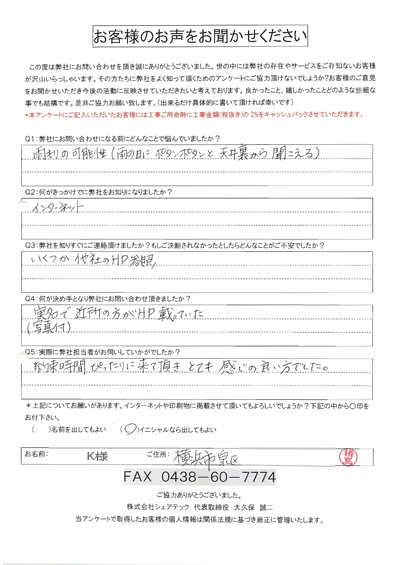 お客様のお声をお聞かせください
この度は弊社にお問い合わせを頂き誠にありがとうございました。世の中には弊社の存在やサービスをご存知ないお客様
が沢山いらっしゃいます。その方たちに弊社をよく知って頂くためのアンケートにご協力頂けないでしょうか?お客様のご意見
をお聞かせいただき今後の活動に反映させていただきたいと考えております。良かったこと、嬉しかったことどのような些細な
事でも結構です。是非ご協力お願い致します。(出来るだけ具体的に書いて頂ければ幸いです)
*本アンケートにご記入いただいたお客様には工事ご用命時に工事金額(税抜き)の2%をキャッシュバックさせていただきます。
Q1:弊社にお問い合わせになる前にどんなことで悩んでいましたか?
雨利の可能性(雨の日に ポタンポタンと 天井裏から 聞こえる)
Q2:何がきっかけでに弊社をお知りになりましたか?
インターネット
Q3:弊社を知りすぐにご連絡頂けましたか?もしご決断されなかったとしたらどんなことがご不安でしたか?
いくつか 他社のHP参照
Q4:何が決め手となり弊社にお問い合わせ頂きましたか?
実名で 近所の方がHP 載っていた
(写真付)
Q5:実際に弊社担当者がお伺いしていかがでしたか?
約束時間ぴったりに来て頂き とても 感じの良い方でした。
*上記についてお願いがあります。インターネットや印刷物に掲載させて頂いてもよろしいでしょうか?下記の中から〇印を
お付下さい。
( )名前を出してもよい (〇)イニシャルなら出してもよい
お名前: K様 ご住所: 横浜市泉区
FAX 0438-60-7774
ご協力ありがとうございました。
株式会社シェアテック 代表取締役 大久保 誠二
当アンケートで取得したお客様の個人情報は関係法規に基づき厳正に管理いたします。